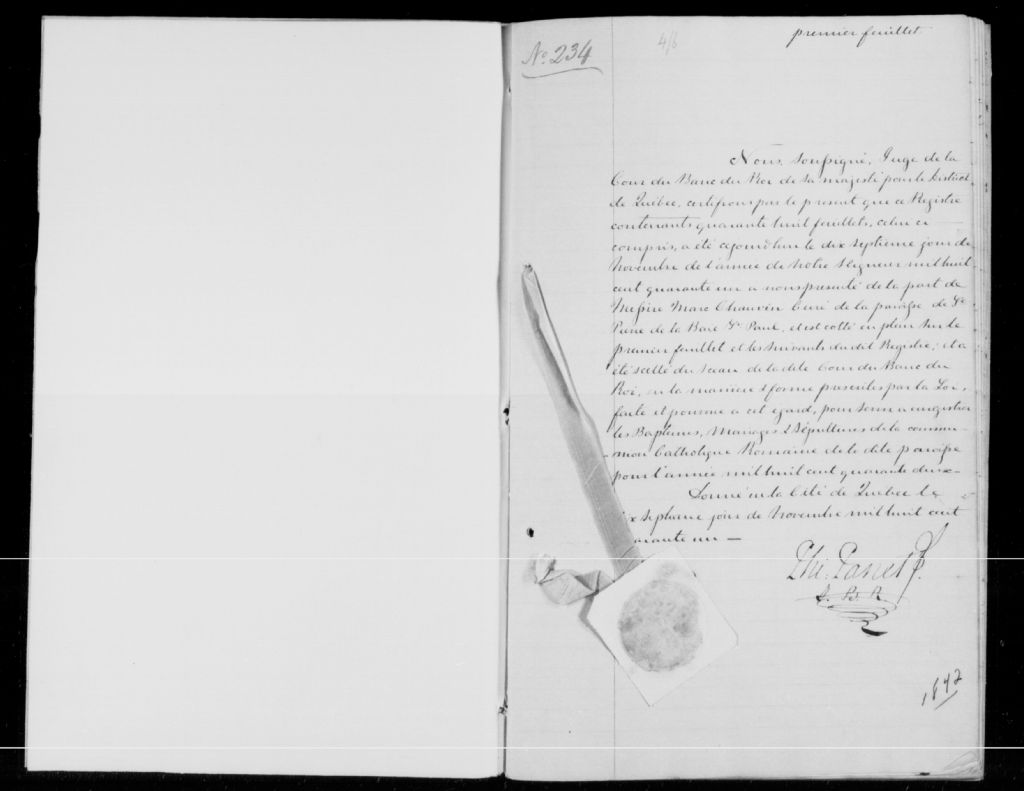 premier feuillet
No. 234
4/6
Nous, soussigné, Juge de la
Cour du Banc du Roi de sa majesté pour le District
de Québec, certifions par le present que ce Registre
contenants quarante huit feuillets, celui ci
compris, a été cejourd'hui le dix septieme jour de
Novembre de l'année de Notre Seigneur mil huit
cent quarante un a nous presenté de la part de
Messire Marc Chauvin Curé de la paroisse de St
Pierre de la Baie St Paul, et est cotté en plein sur le
premier feuillet et les suivants du dit Registre; et a
été scellé du sceau de la dite Cour du Banc du
Roi, en la maniere & forme prescrites par la Loi,
faite et pourvue a cet egard, pour servir a enregistrer
les Baptêmes, Mariages & Sépultures de la commu-
-nion Catholique Romaine de la dite paroisse
pour l'année mil huit cent quarante deux-
Donné en la Cité de Quebec le
dix septieme jour de Novembre mil huit cent
quarante un —
Phi. Panet J.
J. B. R.
1842